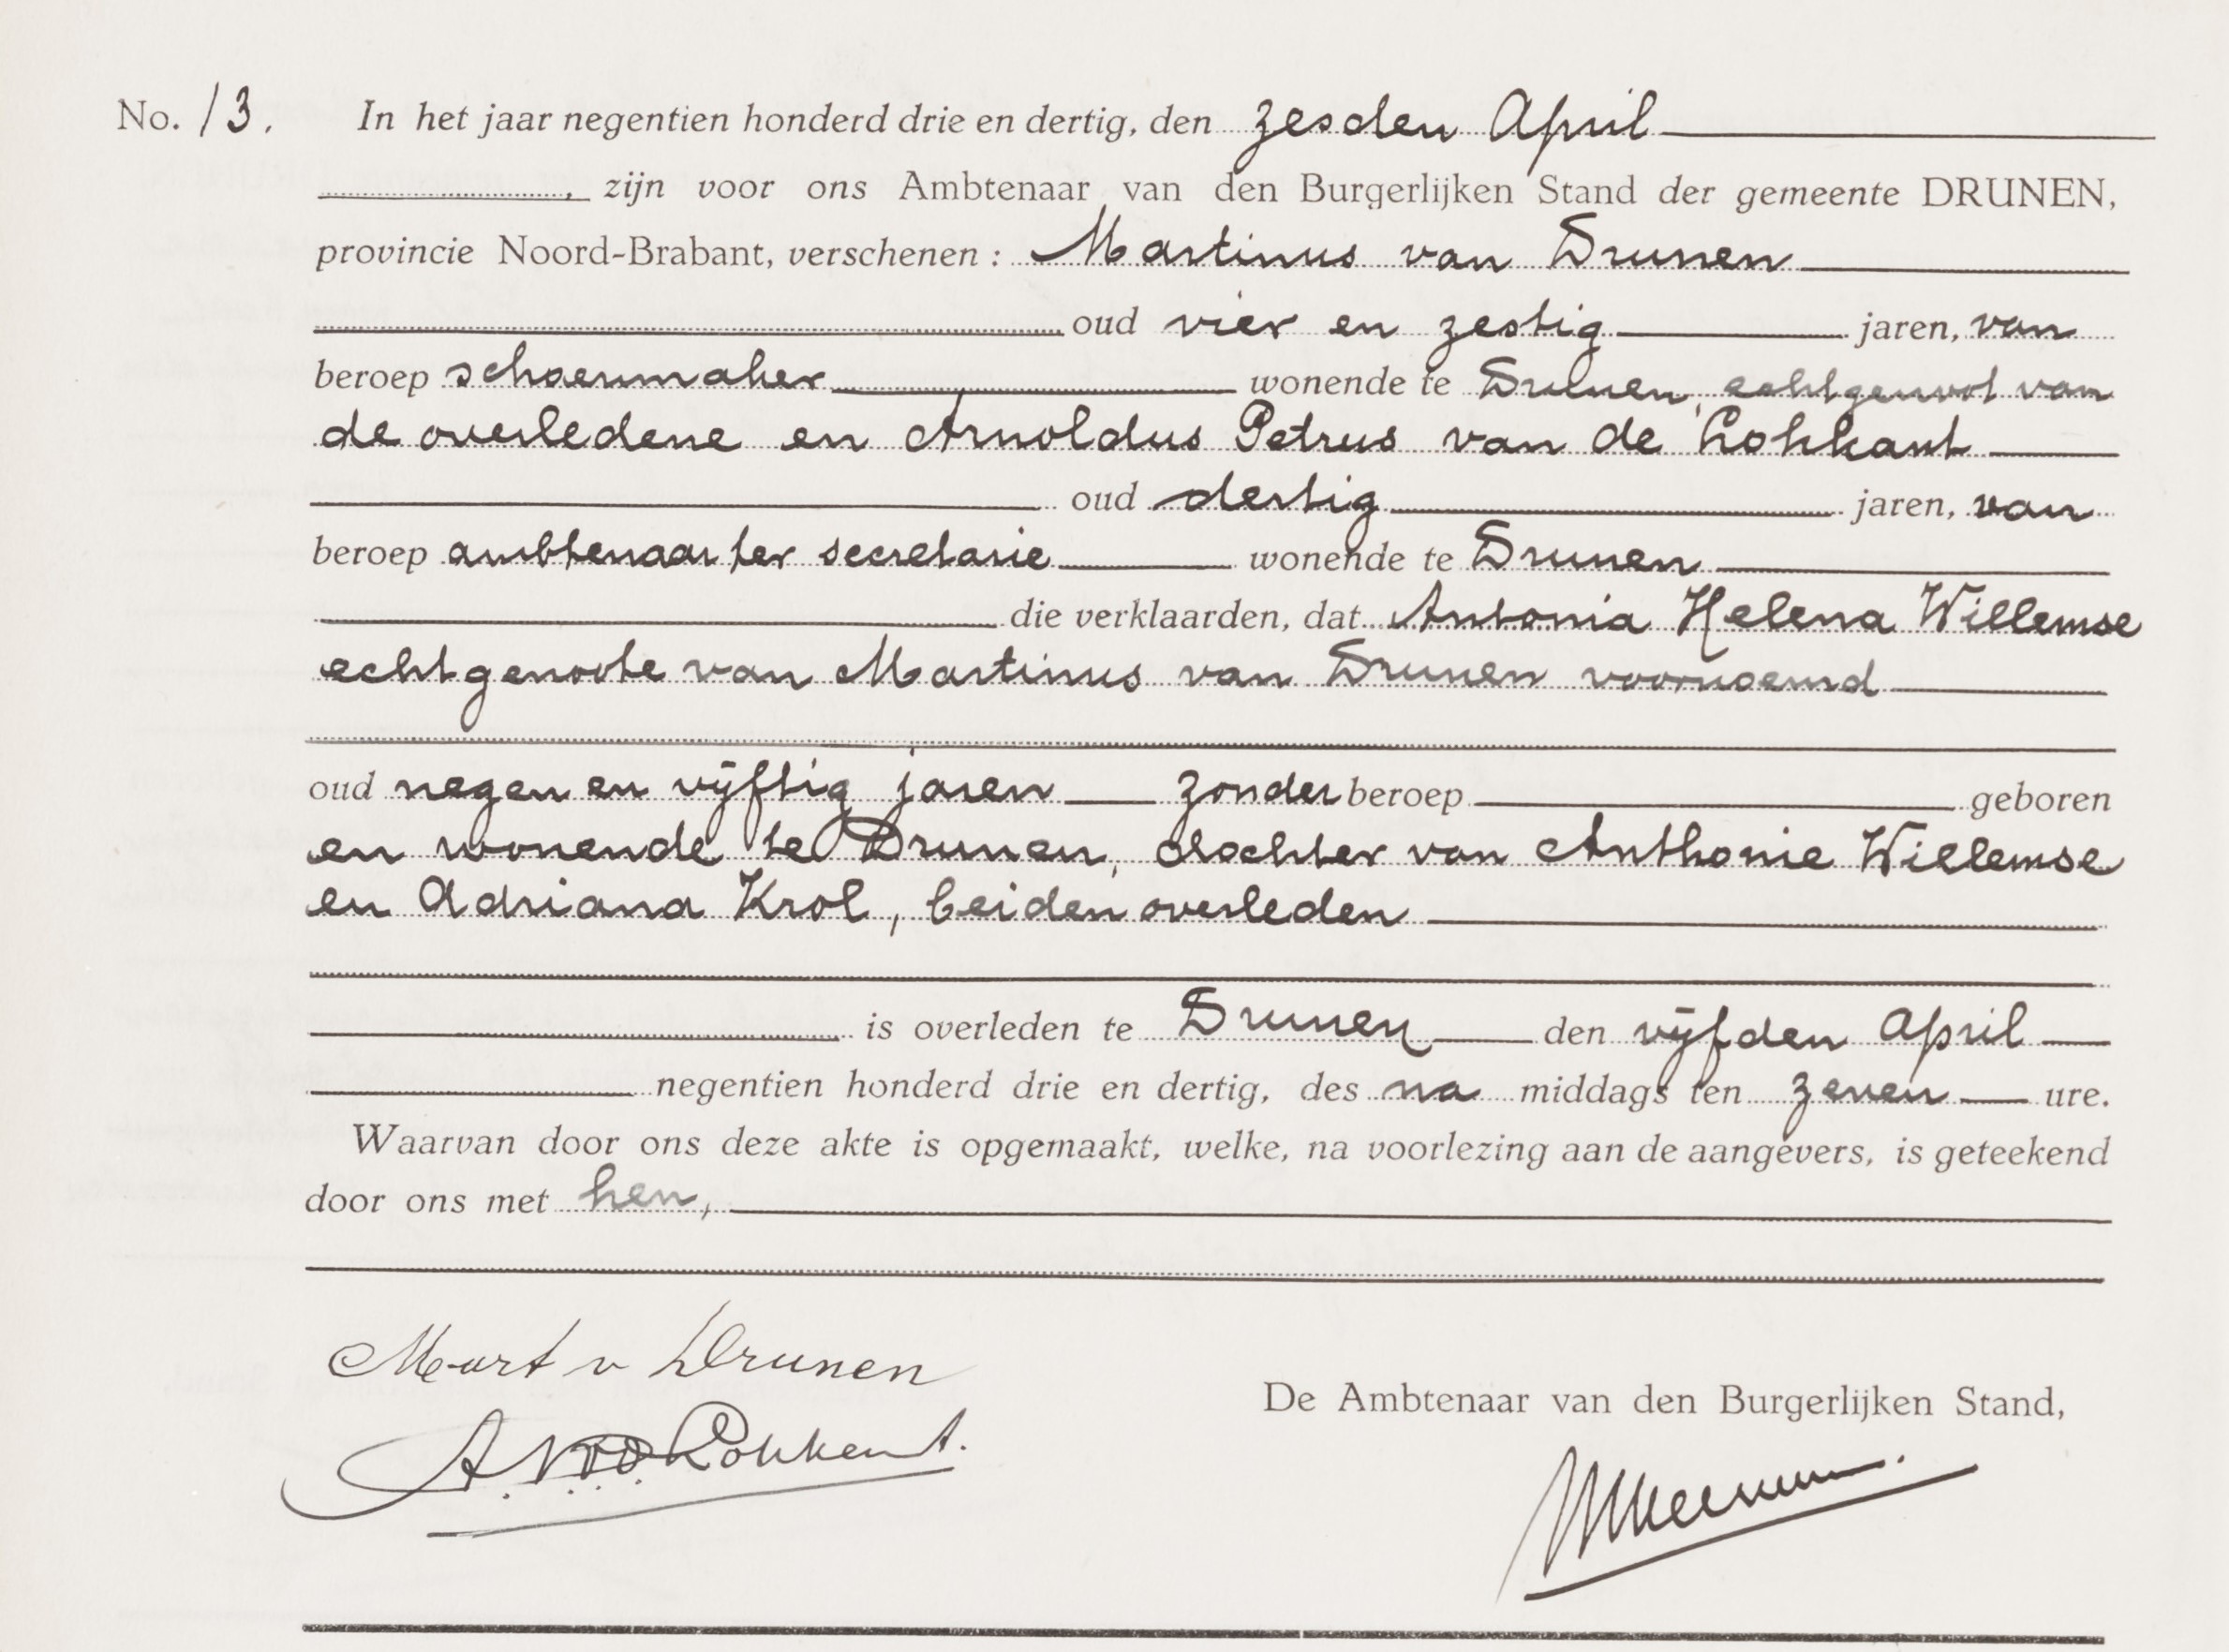 No. 13. In het jaar negentien honderd drie en dertig, den zesden April
, zijn voor ons Ambtenaar van den Burgerlijken Stand der gemeente DRUNEN,
provincie Noord-Brabant, verschenen : Martinus van Drunen
oud vier en zestig jaren, van
beroep schoenmaker wonende te Drunen, echtgenoot van
de overledene en Arnoldus Petrus van de Lokkant
oud dertig jaren, van
beroep ambtenaar ter secretarie wonende te Drunen
die verklaarden, dat Antonia Helena Willemse
echtgenoote van Martinus van Drunen voornoemd
oud negen en vijftig jaren zonder beroep geboren
en wonende te Drunen, dochter van Anthonie Willemse
en Adriana Krol, beiden overleden
is overleden te Drunen den vijfden April
negentien honderd drie en dertig, des na middags ten zeven ure.
Waarvan door ons deze akte is opgemaakt, welke, na voorlezing aan de aangevers, is geteekend
door ons met hen,
Mart v Drunen
A. P. v. d. Lokkant.
De Ambtenaar van den Burgerlijken Stand,